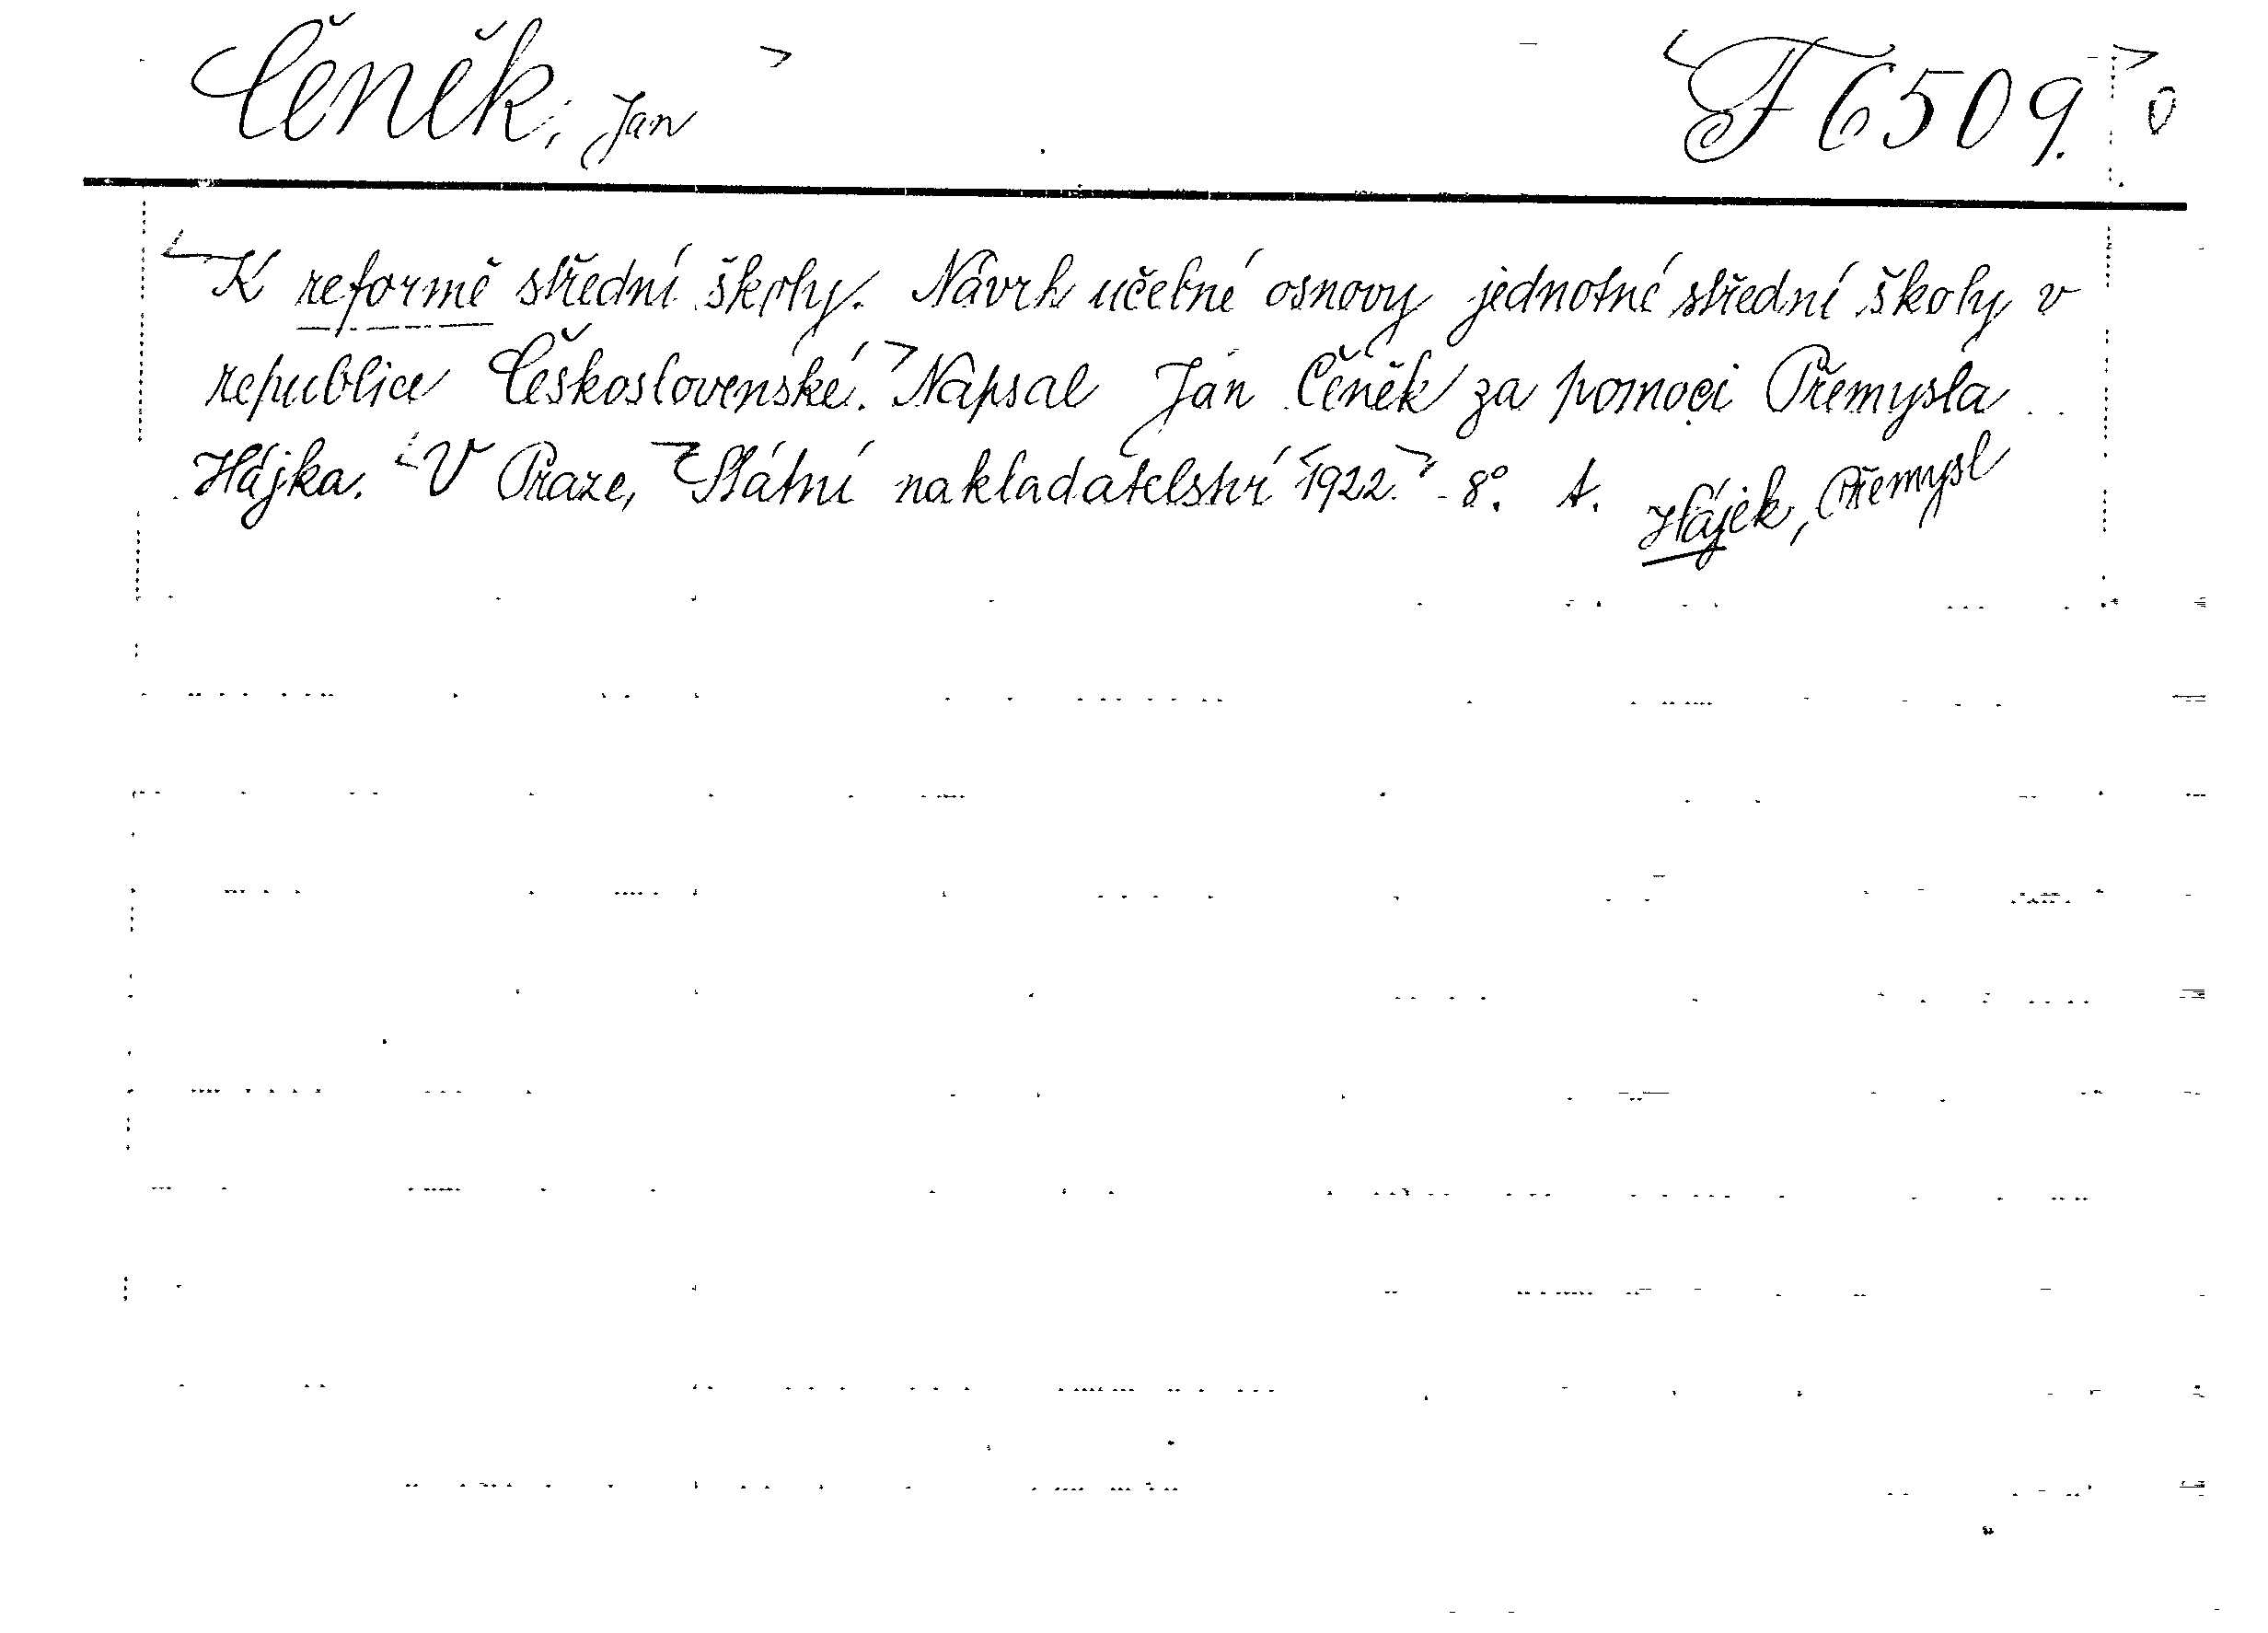 Čeněk, Jan F 6509.
K reformě střední školy. Návrh učebné osnovy jednotné střední školy v
republice Československé. Napsal Jan Čeněk za pomoci Přemysla
Hájka. V Praze, Státní nakladatelství 1922. 8°. A.
Hájek, Přemysl